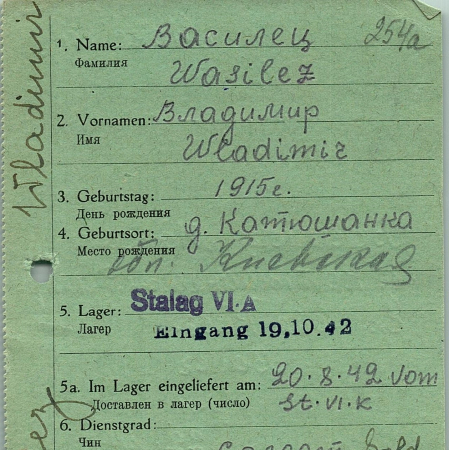 Wladimir
254a
1. Name: Василец
Фамилия
Wasilez
2. Vornamen: Владимир
Имя Wladimir
3. Geburtstag: 1915г.
День рождения
4. Geburtsort: д. Катюшанка
Место рождения обл. Киевская
5. Lager: Stalag VI A
Лагер Eingang 19.10.42
5a. Im Lager eingeliefert am: 20.8.42 vom
Доставлен в лагер (число) St. VI. K
6. Dienstgrad:
Чин